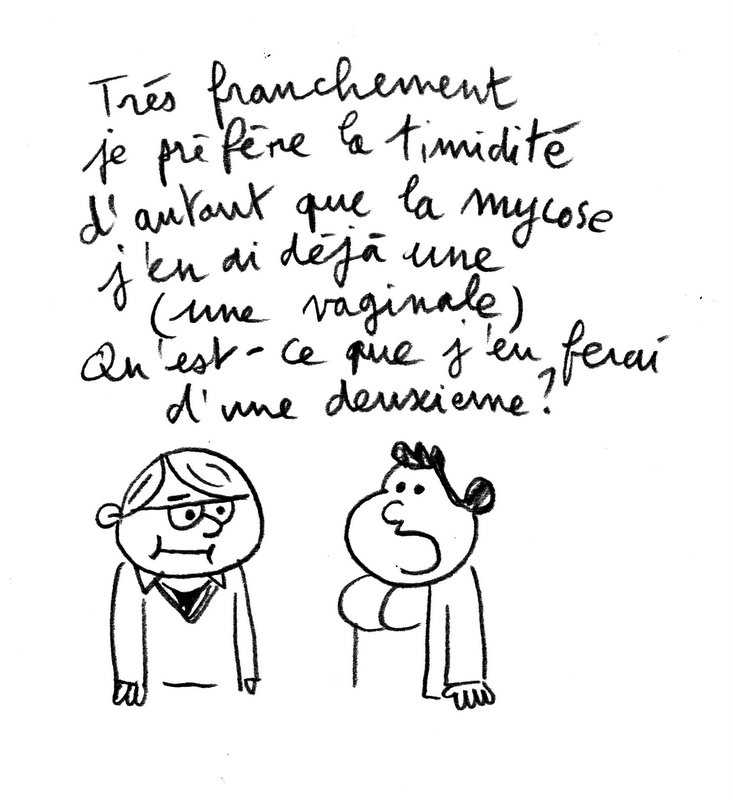 Très franchement
je préfère la timidité
d'autant que la mycose
j'en ai déjà une
(une vaginale)
Qu'est-ce que j'en ferai
d'une deuxième ?